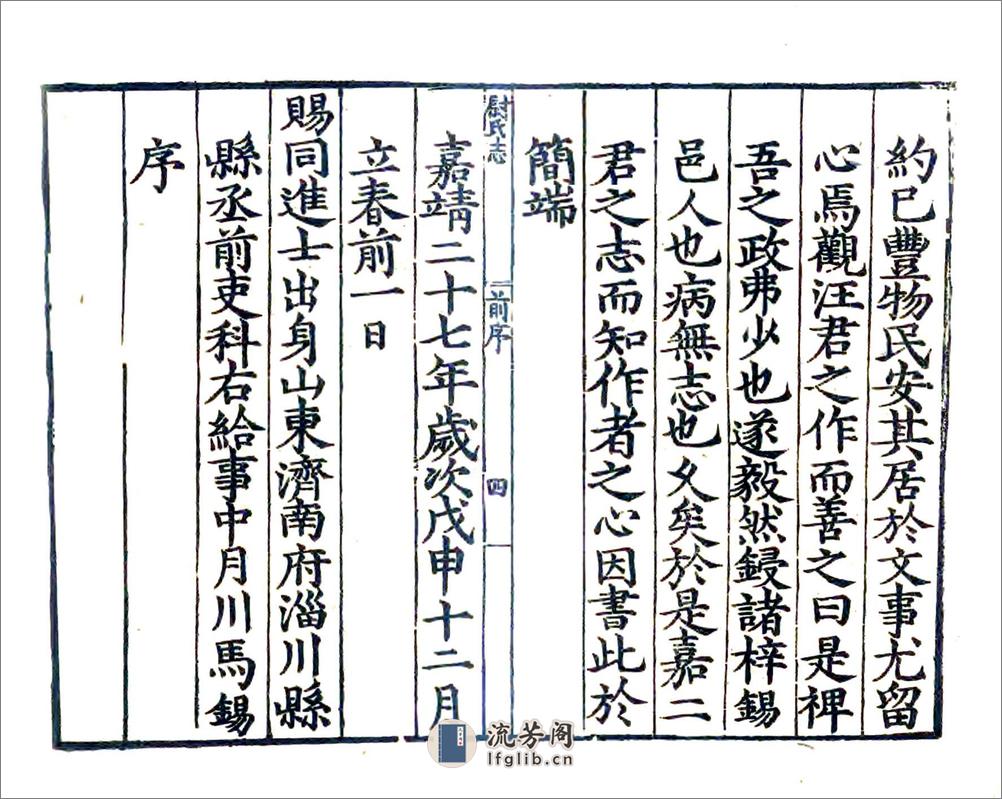 約已豐物民安其居於文事尤留
心焉觀汪君之作而善之曰是裨
吾之政弗少也遂毅然鋟諸梓錫
邑人也病無志也久矣於是嘉二
君之志而知作者之心因書此於
簡端
尉氏志
前序
四
嘉靖二十七年歲次戊申十二月
立春前一日
賜同進士出身山東濟南府淄川縣
縣丞前吏科右給事中月川馬錫
序
流芳阁
lfglib.cn